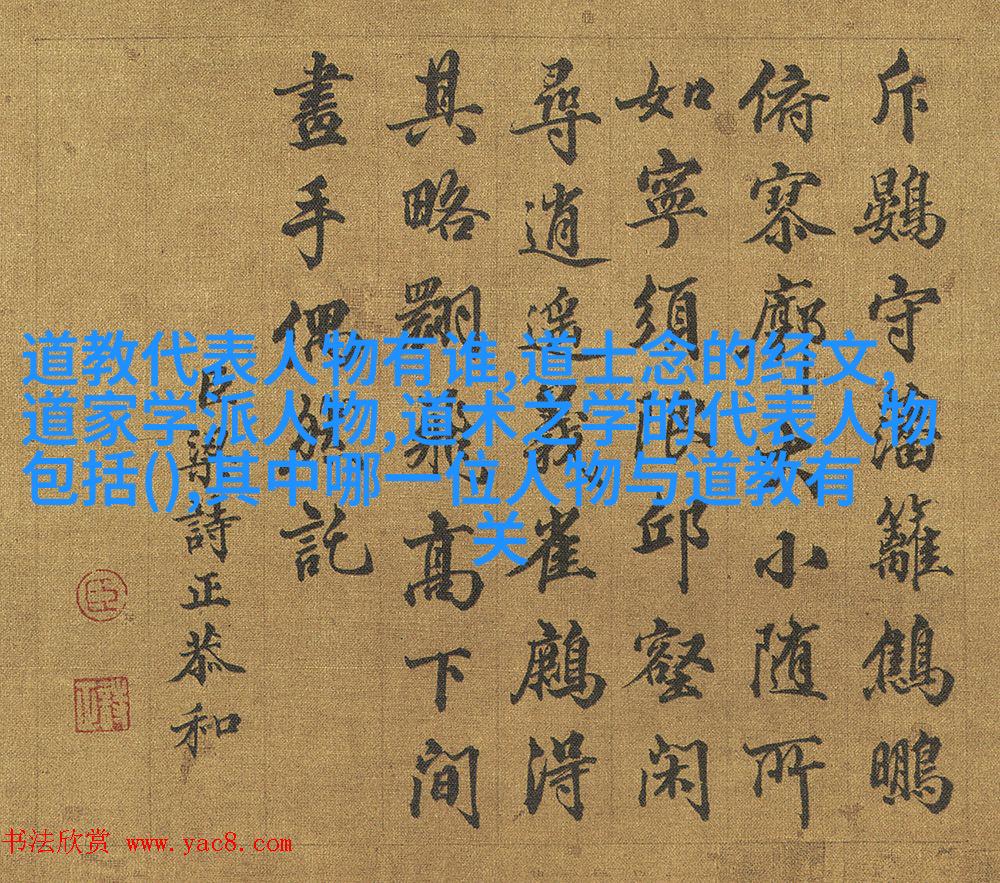 道教代表人物有谁,道士念的经文,
道家学派人物,道术之学的代表人物
包括(),其中哪一位人物与道教有
关
斥鷃守藩籬鷦鵬
俯寥廓大小随所
如寧須限邱壑闲
尋逍遥義雀得
其略翾飛高下间
畫手偶託
臣梁詩正恭和
臣
书法欣赏 www.yac8.com